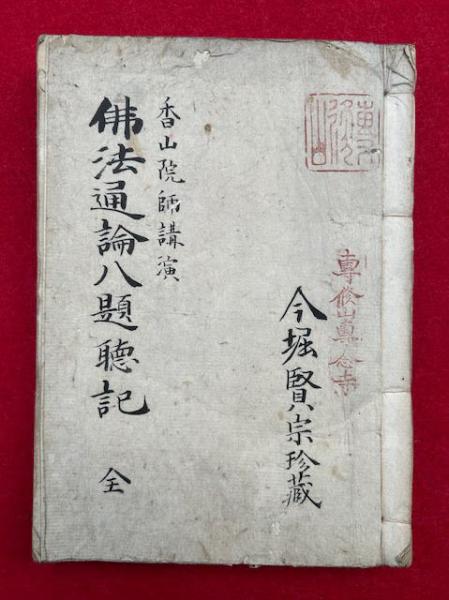 專修山專念寺
今堀賢宗珍藏
香山院師講演
佛法通論八題聴記
全